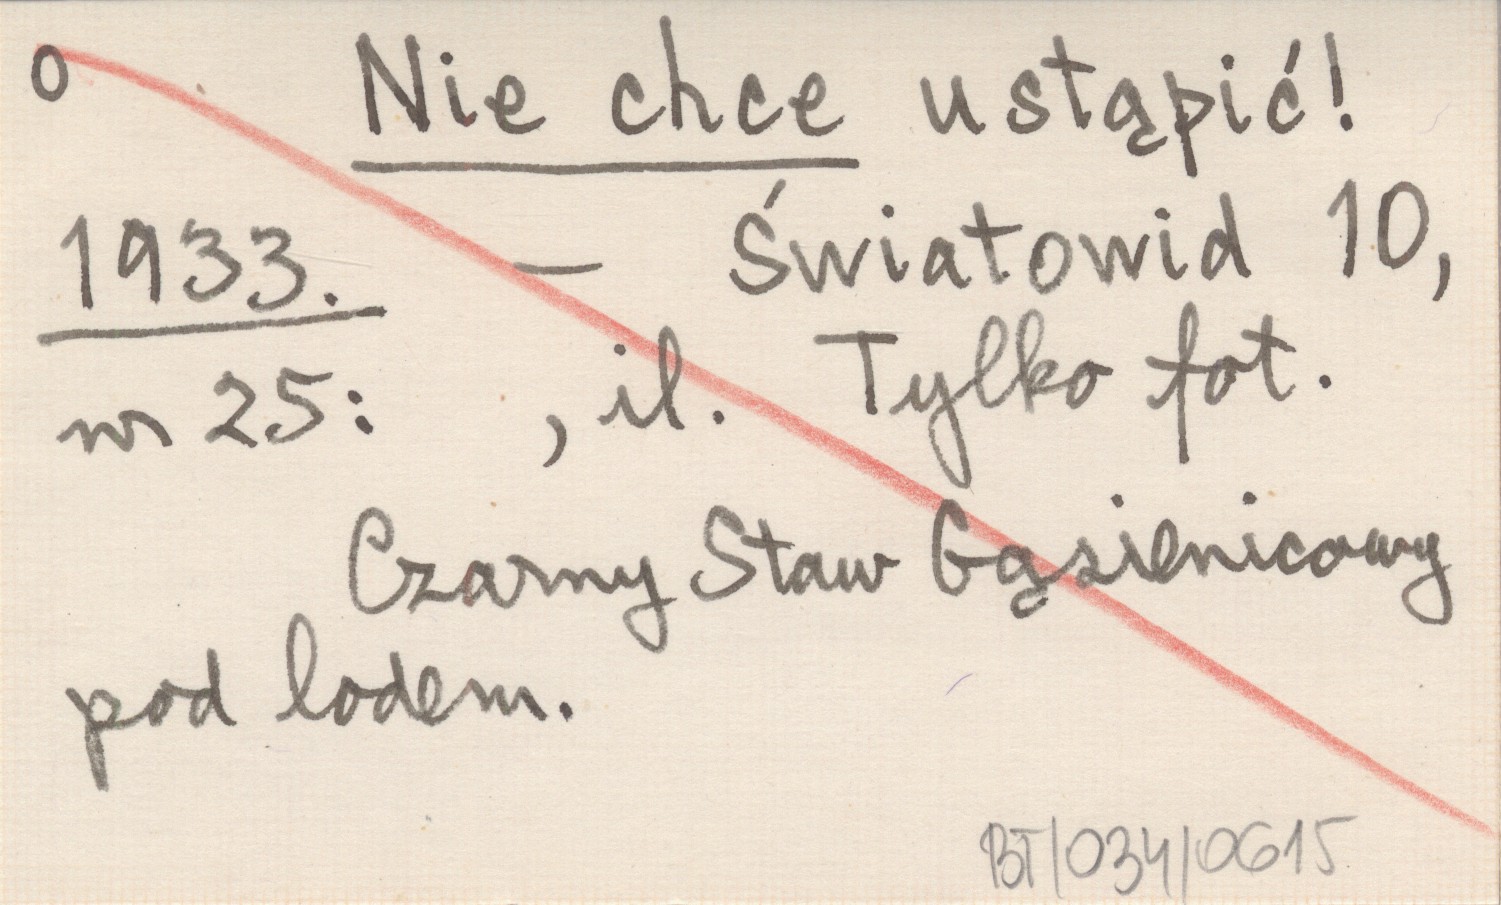 0 Nie chce ustąpić!
1933. – Światowid 10,
nr 25: , il. Tylko fot.
Czarny Staw Gąsienicowy
pod lodem.
BT/034/0615